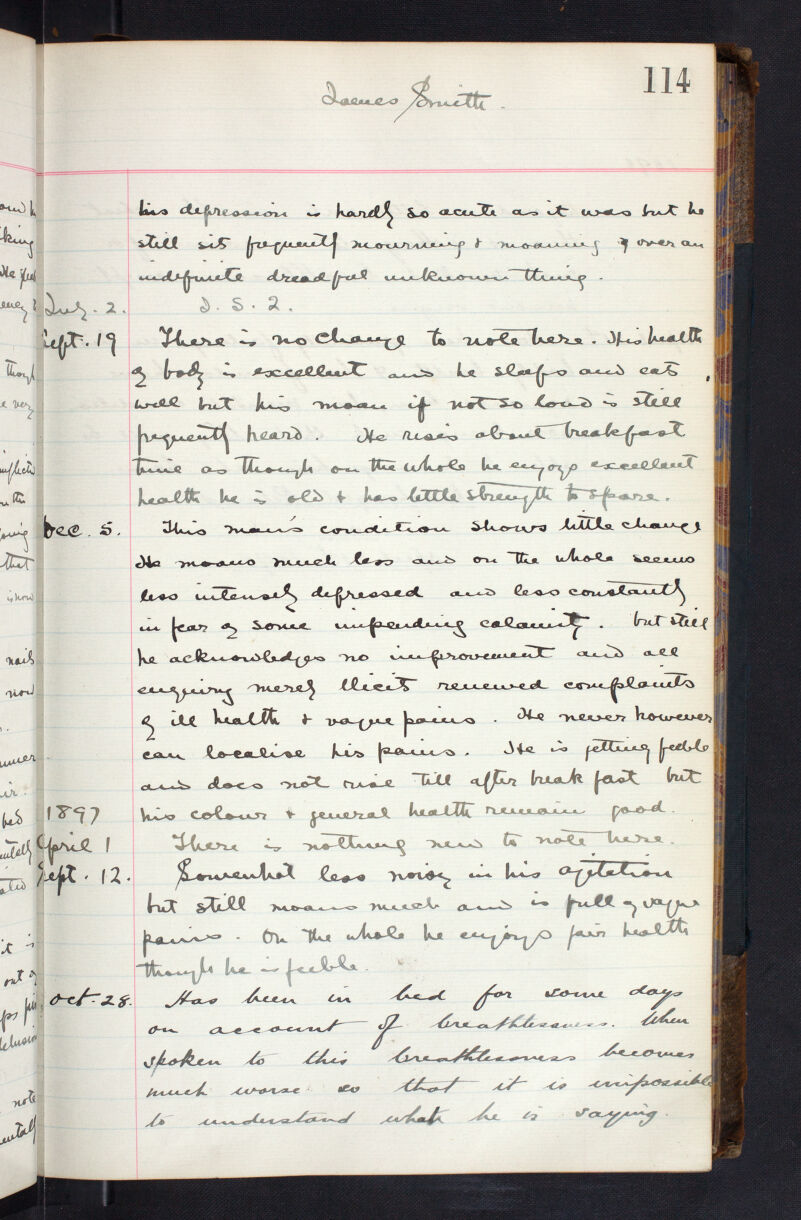 114
James Smith.
his depression is hardly so acute as it was but he
still sits frequently mourning & moaning over an
indefinite dreadful unknown thing.
July. 2. I. S. 2.
Sept. 19 There is no change to note here. His health
of body is excellent and he sleeps and eats
well but his moan if not so loud is still
frequently heard. He rises about breakfast
time as though on the whole he enjoys excellent
health he is old & has little strength to spare.
Dec. 5. This man's condition shows little change
He moans much less and on the whole seems
less intensely depressed and less constantly
in fear of some impending calamity. but still
he acknowledges no improvement and all
enquiry merely illicits renewed complaints
of ill health & vague pains. He never however
can localise his pains. He is getting feeble
and does not rise till after breakfast but
1897 his colour & general health remain good.
April 1 There is nothing new to note here.
Sept. 12. Somewhat less noisy in his agitation
but still moans much and is full of vague
pains. On the whole he enjoys fair health
though he is feeble.
Oct. 28. Has been in bed for some days
on account of breathlessness. When
spoken to this breathlessness becomes
much worse so that it is impossible
to understand what he is saying.